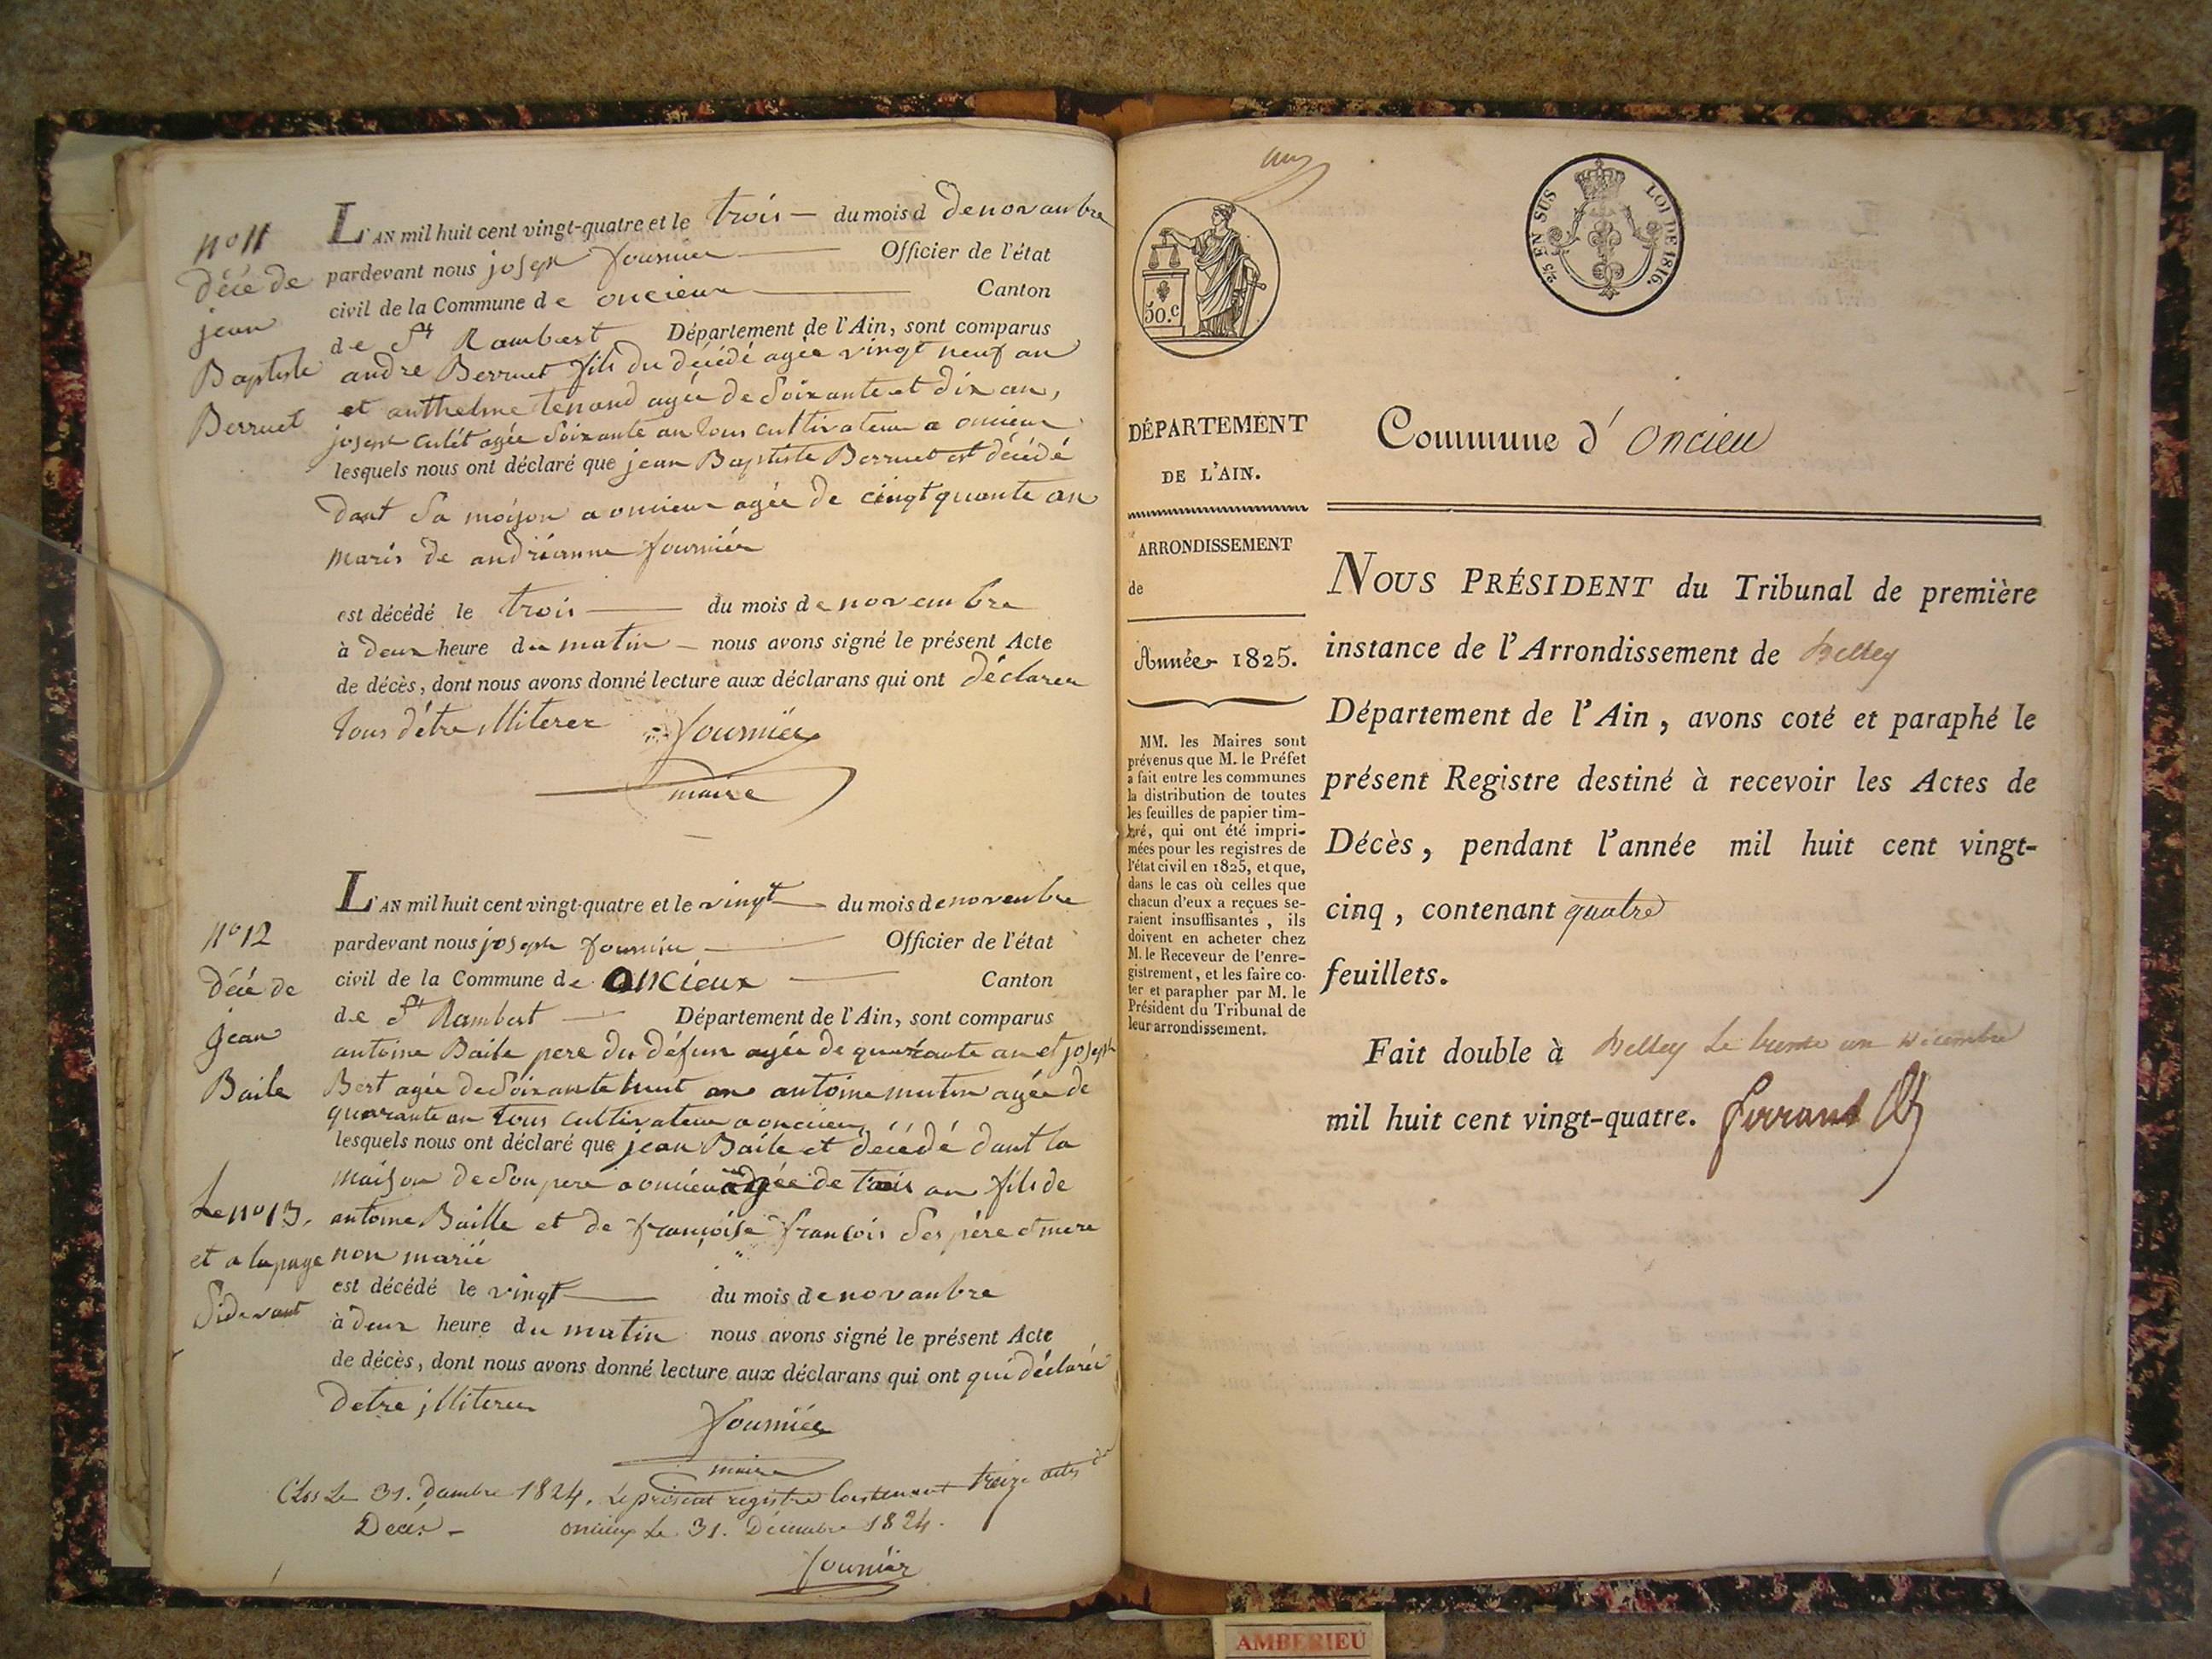 n° 11
décé de
jean
Baptiste
Berruet
L'AN mil huit cent vingt-quatre et le trois — du mois d de novanbre
pardevant nous joseph fournier — Officier de l'état
civil de la Commune de oncieux — Canton
de St Rambert Département de l'Ain, sont comparus
andre Berruet fils du décédé agée vingt neuf an
et anthelme tenand agée de Soixante et dix an,
joseph culét agée Soixante an tous cultivateur a oncieux
lesquels nous ont déclaré que jean Baptiste Berruet est décédé
dant Sa moison a oncieux agée de cingtquante an
mariés de andréanne fourniér
est décédé le trois — du mois de novembre
à deux heure du matin — nous avons signé le présent Acte
de décès, dont nous avons donné lecture aux déclarans qui ont déclarer
tous d'être illiterer fourniér
maire
n° 12
décé de
jean
Baile
L'AN mil huit cent vingt-quatre et le vingt — du mois de novenbre
pardevant nous joseph fournier — Officier de l'état
civil de la Commune de oncieux — Canton
de St Rambert — Département de l'Ain, sont comparus
antoine Baile pere du défun agée de quarante an et joseph
Bert agée de Soixante huit an antoine mutin agée de
quarante an tous cultivateur a oncieu
lesquels nous ont déclaré que jean Baile et décédé dant la
maison de Son pere a oncieu agée de trois an fils de
antoine Baille et de françoise françois Ses pére et mere
non marié
Le n° 13.
et a la page
Sidevant
est décédé le vingt — du mois de novanbre
à deux heure du matin nous avons signé le présent Acte
de décès, dont nous avons donné lecture aux déclarans qui ont qui déclarér
detre illiterer
fourniér
maire
Clos Le 31. Décembre 1824. Le présent registre Contenant treize actes de
Décés — oncieu Le 31. Décembre 1824.
fourniér
50.C
2/5 EN SUS LOI DE 1816.
DÉPARTEMENT
DE L'AIN.
ARRONDISSEMENT
de
Année 1825.
MM. les Maires sont
prévenus que M. le Préfet
a fait entre les communes
la distribution de toutes
les feuilles de papier tim-
bré, qui ont été impri-
mées pour les registres de
l'état civil en 1825, et que,
dans le cas où celles que
chacun d'eux a reçues se-
raient insuffisantes, ils
doivent en acheter chez
M. le Receveur de l'enre-
gistrement, et les faire co-
ter et parapher par M. le
Président du Tribunal de
leur arrondissement.
Commune d'Oncieu
NOUS PRÉSIDENT du Tribunal de première
instance de l'Arrondissement de Belley
Département de l'Ain, avons coté et paraphé le
présent Registre destiné à recevoir les Actes de
Décès, pendant l'année mil huit cent vingt-
cinq, contenant quatre
feuillets.
Fait double à Belley Le trente un décembre
mil huit cent vingt-quatre. Ferrand
AMBERIEU